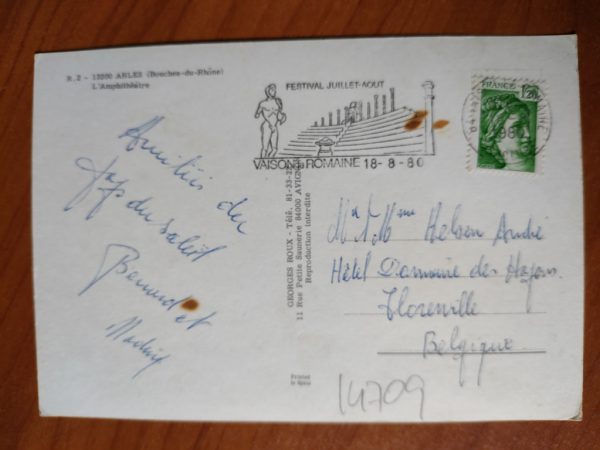 R. 2 - 13200 ARLES (Bouches-du-Rhône)
L'Amphithéâtre
FESTIVAL JUILLET-AOUT
VAISON la ROMAINE 18-8-80
FRANCE 1,20
Amitiés du
pays du soleil
Bernard et
GEORGES ROUX - Télé. 81-33-2
11 Rue Petite Saunerie 84000 AVIGNON
Reproduction interdite
Printed
in Spain
Mr et Mme André
Hôtel Domaine des
Florenville
Belgique
14709